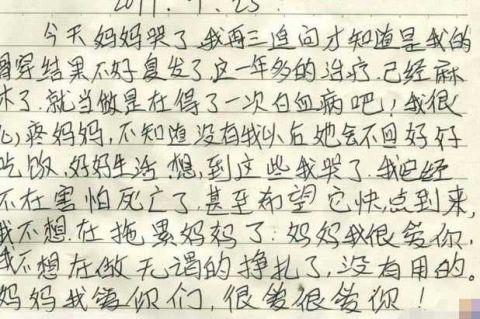 今天妈妈哭了,我再三追问才知道是我的
骨穿结果不好复发了,这一年多的治疗,已经麻
木了,就当做是在得了一次白血病吧!我很
心疼妈妈,不知道没有我以后她会不回好好
吃饭,好好生活,想,到这些我哭了,我已经
不在害怕死亡了,甚至希望它快,点到来,
我不想在拖累妈妈了:妈妈我很爱你,
我不想在做无谓的挣扎了,没有用的。
妈妈我爱你们,很爱很爱你!